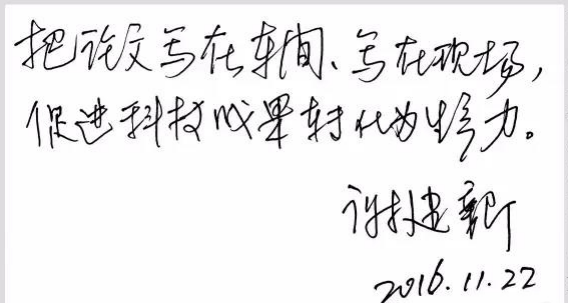 把论文写在车间、写在现场，
促进科技成果转化为生产力。
谢建新
2016.11.22